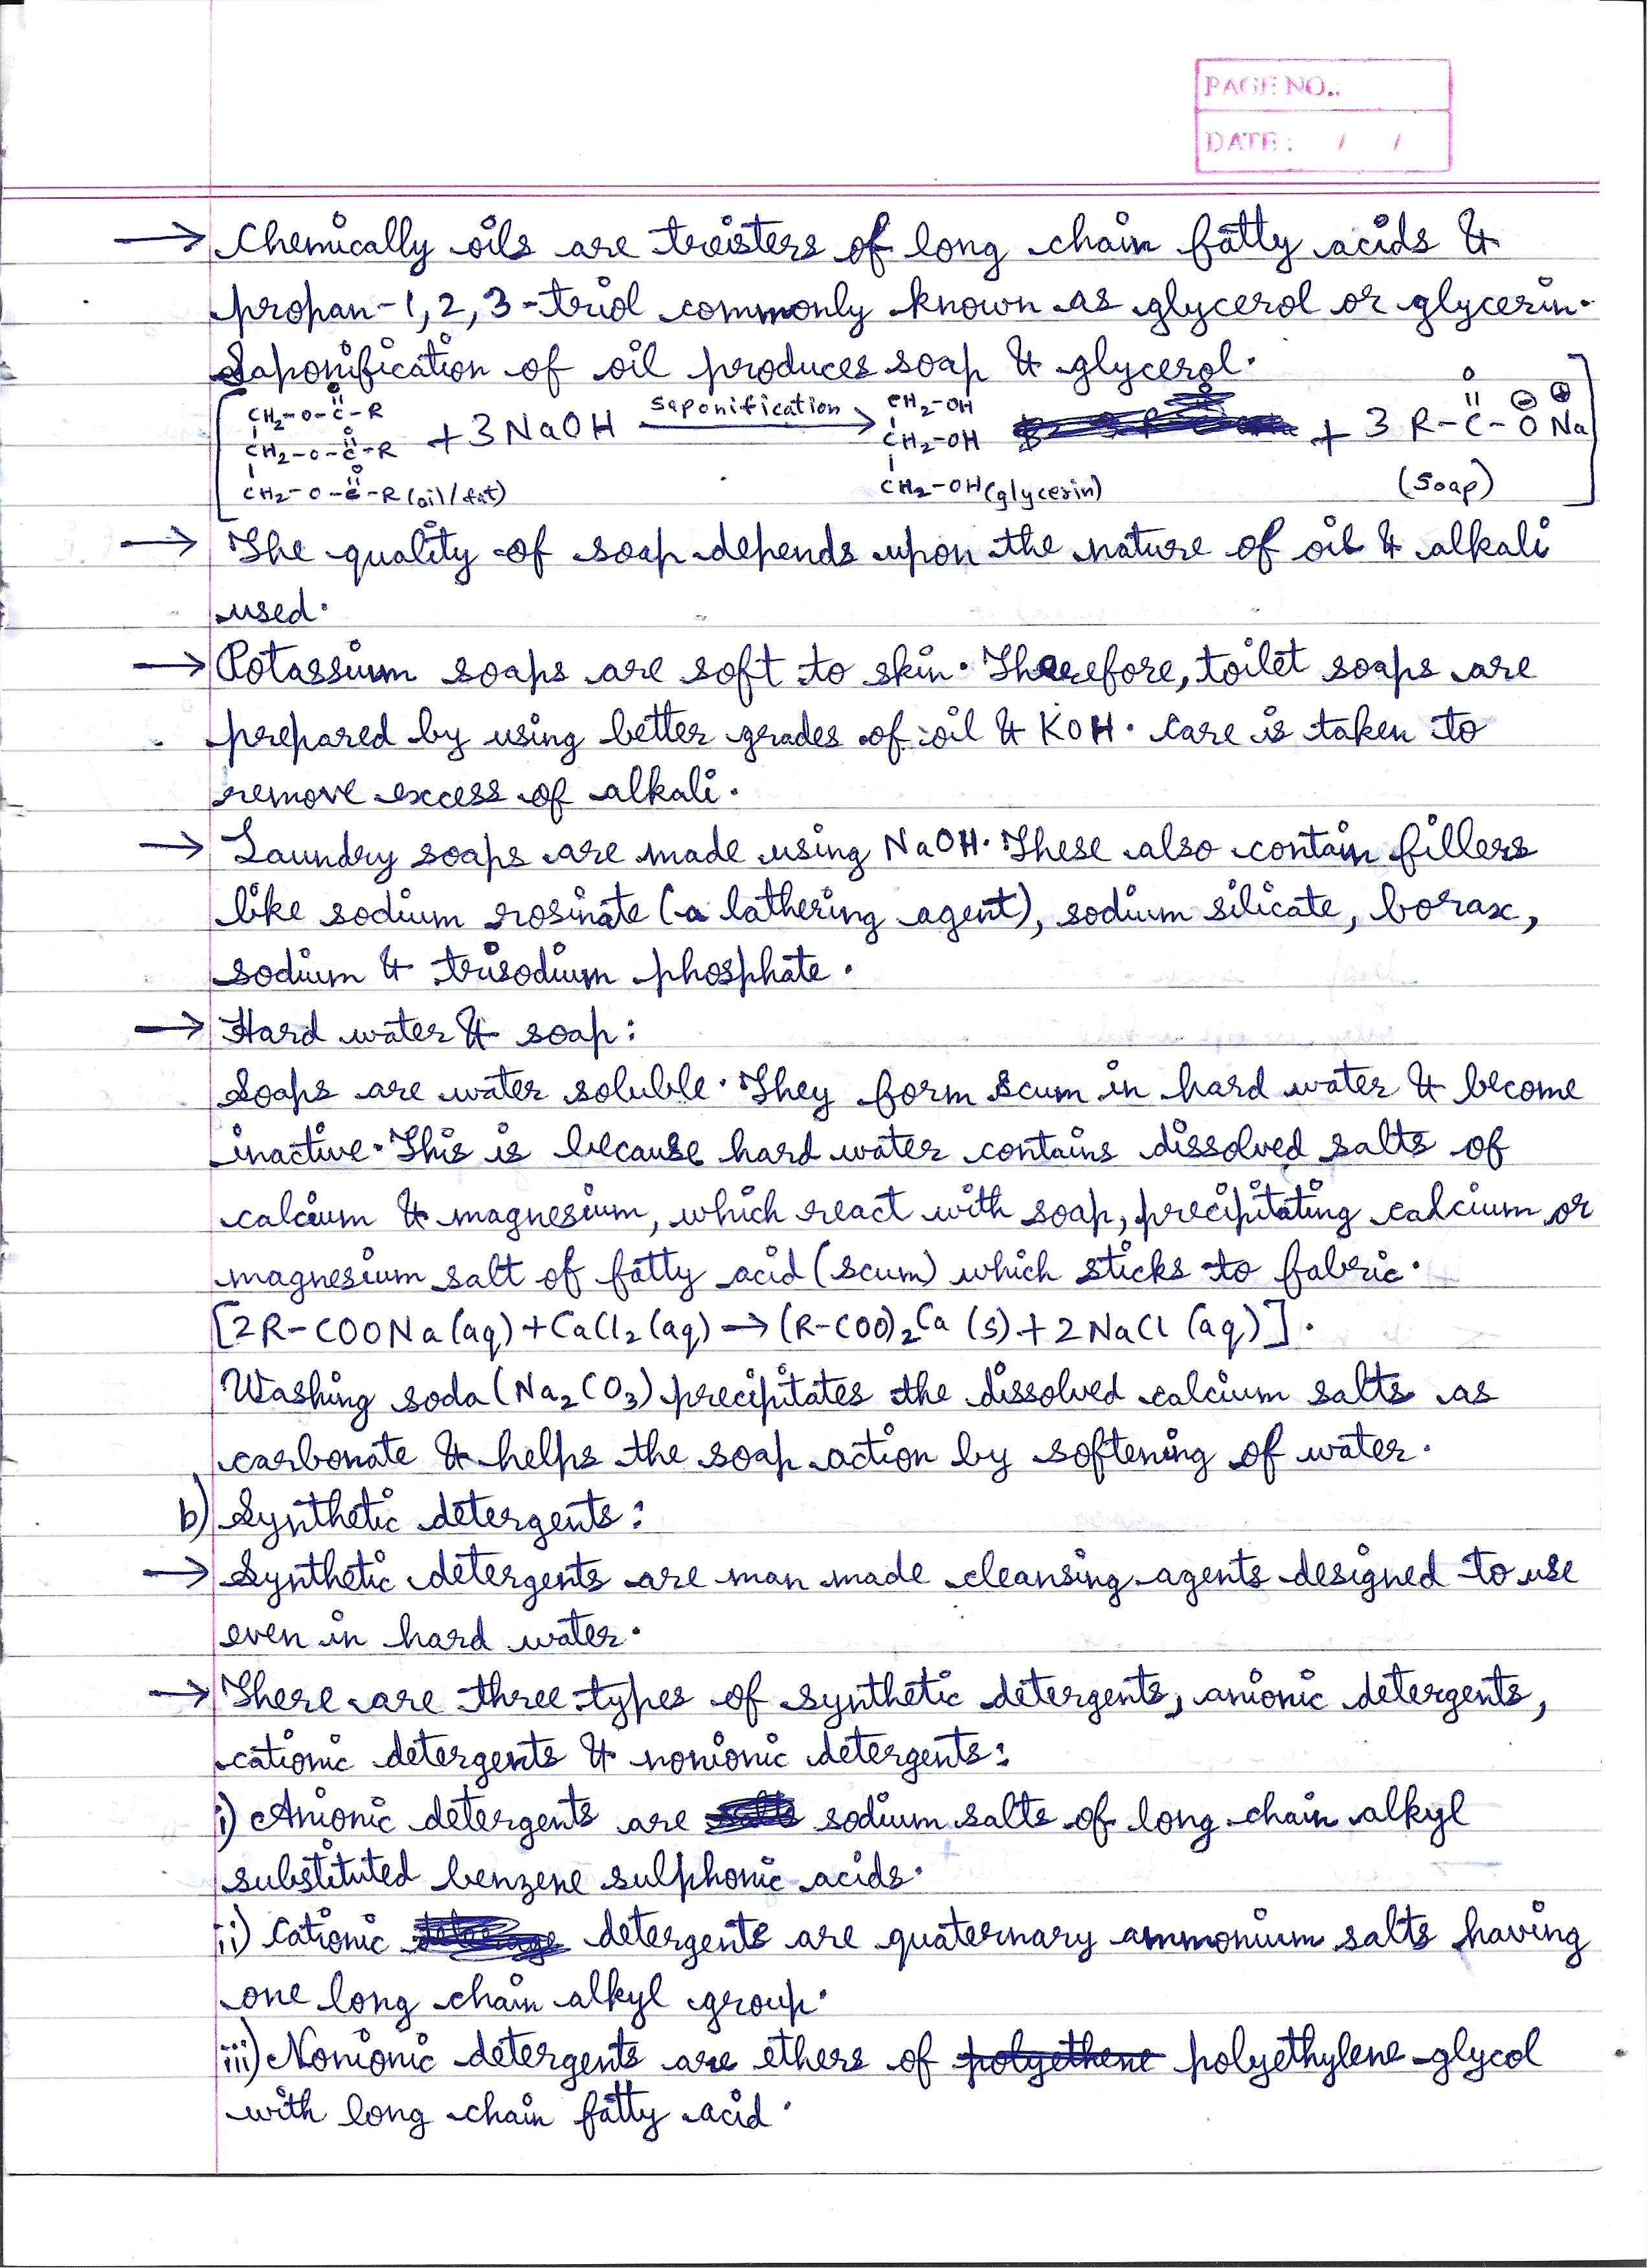 PAGE NO.:
DATE: / /
→ Chemically oils are treisters of long chain fatty acids &
propan-1,2,3-triol commonly known as glycerol or glycerin.
Saponification of oil produces soap & glycerol.
[CH2-O-C(=O)-R
CH2-O-C(=O)-R + 3NaOH saponification → CH2-OH CH2-OH CH2-OH (glycerin) + 3 R-C(=O)-O⊖ Na⊕ (Soap)]
CH2-O-C(=O)-R (oil/fat)
→ The quality of soap depends upon the nature of oil & alkali
used.
→ Potassium soaps are soft to skin. Therefore, toilet soaps are
prepared by using better grades of oil & KOH. Care is taken to
remove excess of alkali.
→ Laundry soaps are made using NaOH. These also contain fillers
like sodium rosinate (a lathering agent), sodium silicate, borax,
sodium & trisodium phosphate.
→ Hard water & soap:
Soaps are water soluble. They form scum in hard water & become
inactive. This is because hard water contains dissolved salts of
calcium & magnesium, which react with soap, precipitating calcium or
magnesium salt of fatty acid (scum) which sticks to fabric.
[2R-COONa (aq) + CaCl2 (aq) → (R-COO)2Ca (s) + 2NaCl (aq)].
Washing soda (Na2CO3) precipitates the dissolved calcium salts as
carbonate & helps the soap action by softening of water.
b) Synthetic detergents:
→ Synthetic detergents are man made cleansing agents designed to use
even in hard water.
→ There are three types of synthetic detergents, anionic detergents,
cationic detergents & nonionic detergents:
i) Anionic detergents are sodium salts of long chain alkyl
substituted benzene sulphonic acids.
ii) Cationic detergents are quaternary ammonium salts having
one long chain alkyl group.
iii) Nonionic detergents are ethers of polyethene polyethylene glycol
with long chain fatty acid.